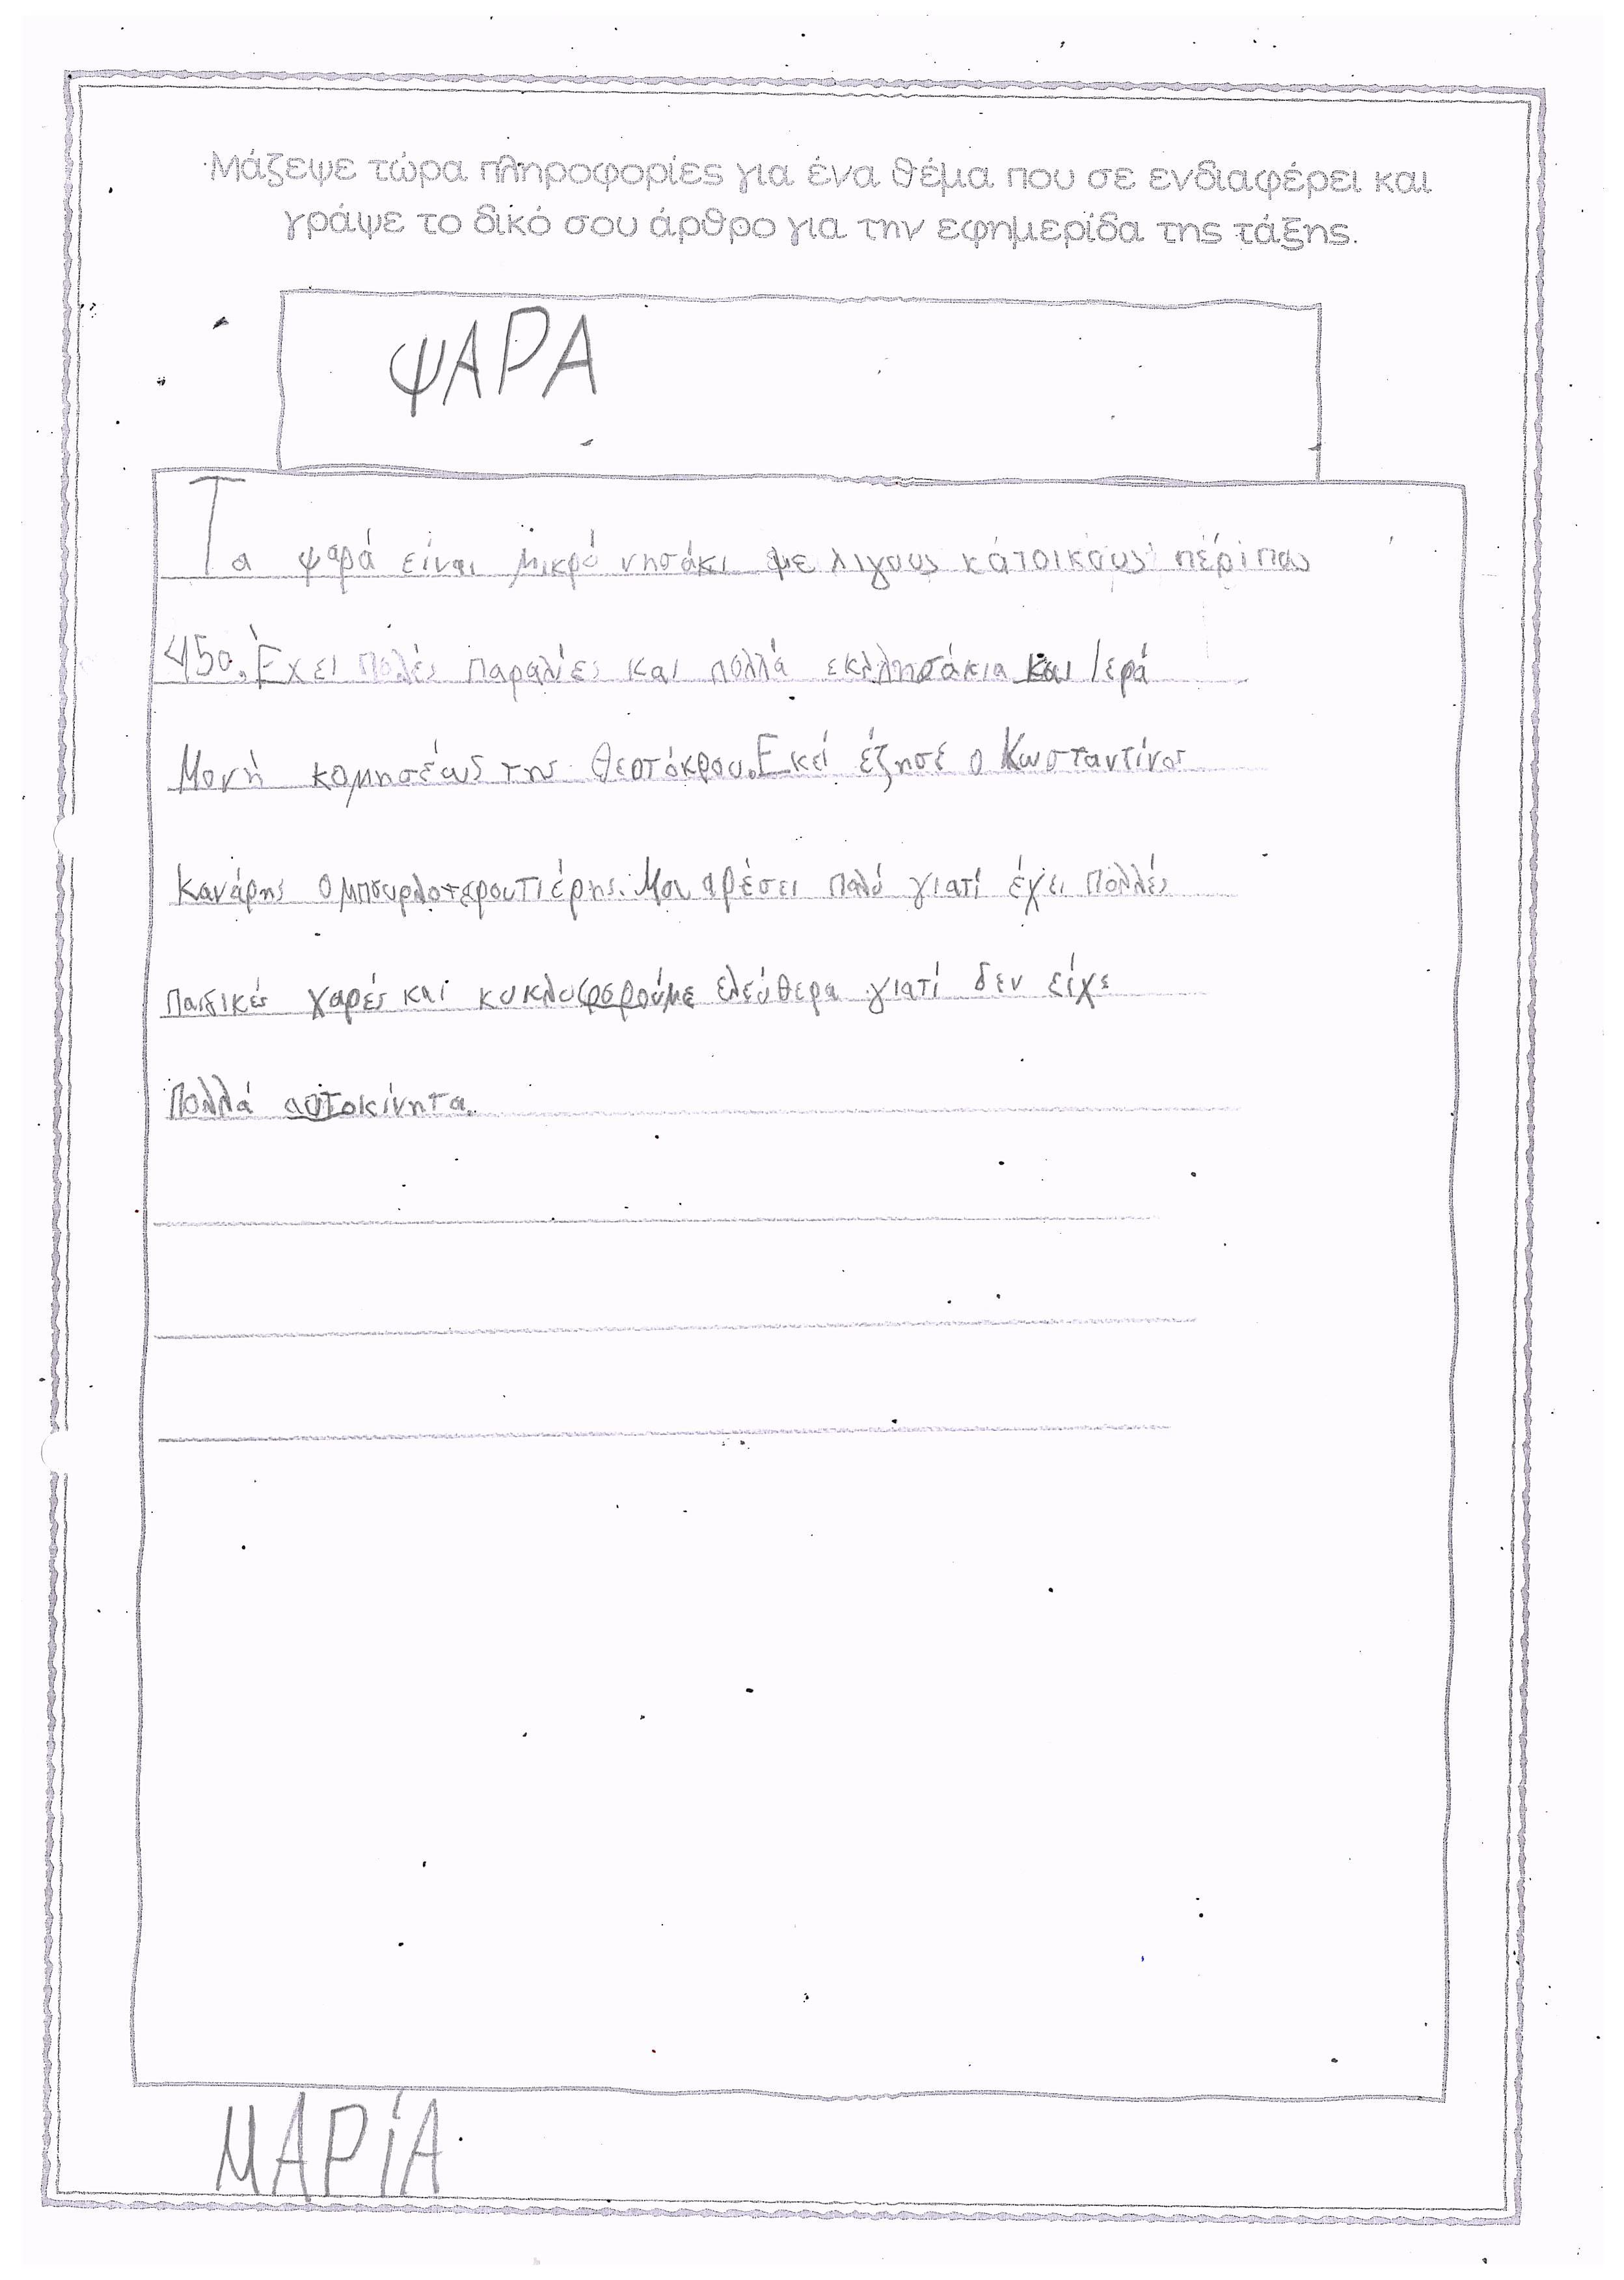 Μάζεψε τώρα πληροφορίες για ένα θέμα που σε ενδιαφέρει και
γράψε το δικό σου άρθρο για την εφημερίδα της τάξης.
ΨΑΡΑ
Τα ψαρά είναι μικρό νησάκι με λιγους κάτοικους πέριπου
450. Έχει πολές παραλίες και πολλά εκκλησάκια και Ιερά
Μονή κομησέως της Θεοτόκρου. Εκεί έζησέ ο Κωσταντίνος
Κανάρης ο Μου αρέσει πολύ γιατί έχει πολλές
παιδικές χαρές και κυκλοφορούμε ελεύθερα γιατί δεν είχε
πολλά αυτοκίνητα.
ΜΑΡΊΑ